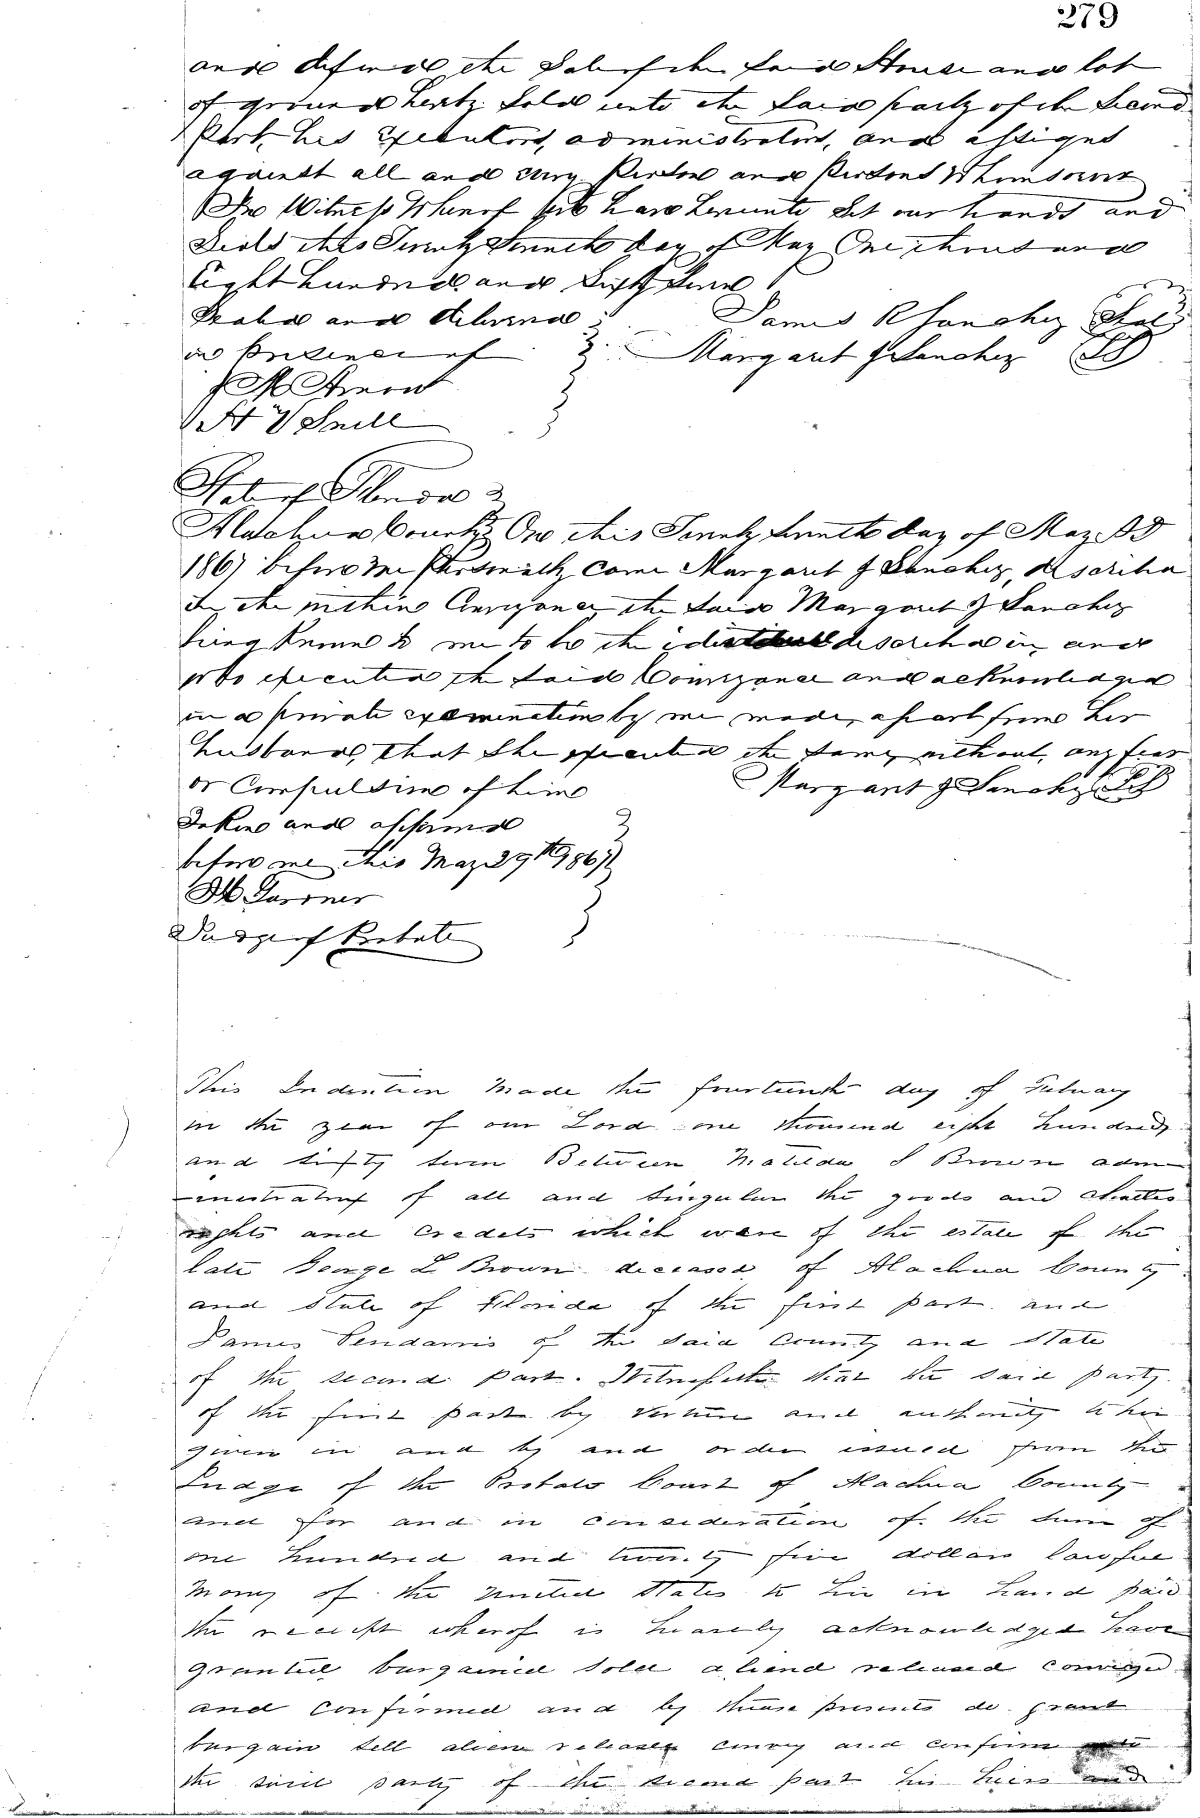 279
and defend the Sale of the Said House and lot
of ground hereby Sold unto the Said party of the Second
Part, his Executors, administrators, and assigns
against all and every Person and Persons Whomsoever
In Witness Whereof We have hereunto Set our hands and
Seals this Twenty Seventh day of May One thousand
Eight hundred and Sixty Seven
Sealed and delivered James R Sanchez Seal
in Presence of Margaret J Sanchez LS
H V Snell
State of Florida
Alachua County On this Twenty Seventh day of May AD
1867 before me Personally Came Margaret J Sanchez, describe
in the within Conveyance the Said Margaret J Sanchez
being Known to me to be the described in and
who executed the Said Conveyance and acknowledged
in a private examination by me made, apart from her
husband, that She executed the Same, without, any fear
or Compulsion of him Margaret J Sanchez LS
Taken and affirmed
before me this May 29th 1867
Gardner
Judge of Probate
This Indenture Made the fourteenth day of Febuary
in the year of our Lord one thousand eight hundred
and sixty seven Between Matilda S Brown adm
inistratrix of all and Singular the goods and chattles
rights and credets which were of the estate of the
late George L Brown deceased of Alachua County
and State of Florida of the first part and
James Pendarvis of the said County and State
of the second part. Witnesseth that the said party
of the first part by virtue and authority to her
given in and by and order issued from the
Judge of the Probate Court of Alachua County
and for and in consideration of the sum of
one hundred and twenty five dollars lawful
Money of the united States to her in hand paid
the receipt wherof is hearely acknowledged have
granted bargained sold aliend released conveyed
and confirmed and by these presents do grant
bargain sell alien release convey and confirm
the said party of the second part his heirs and